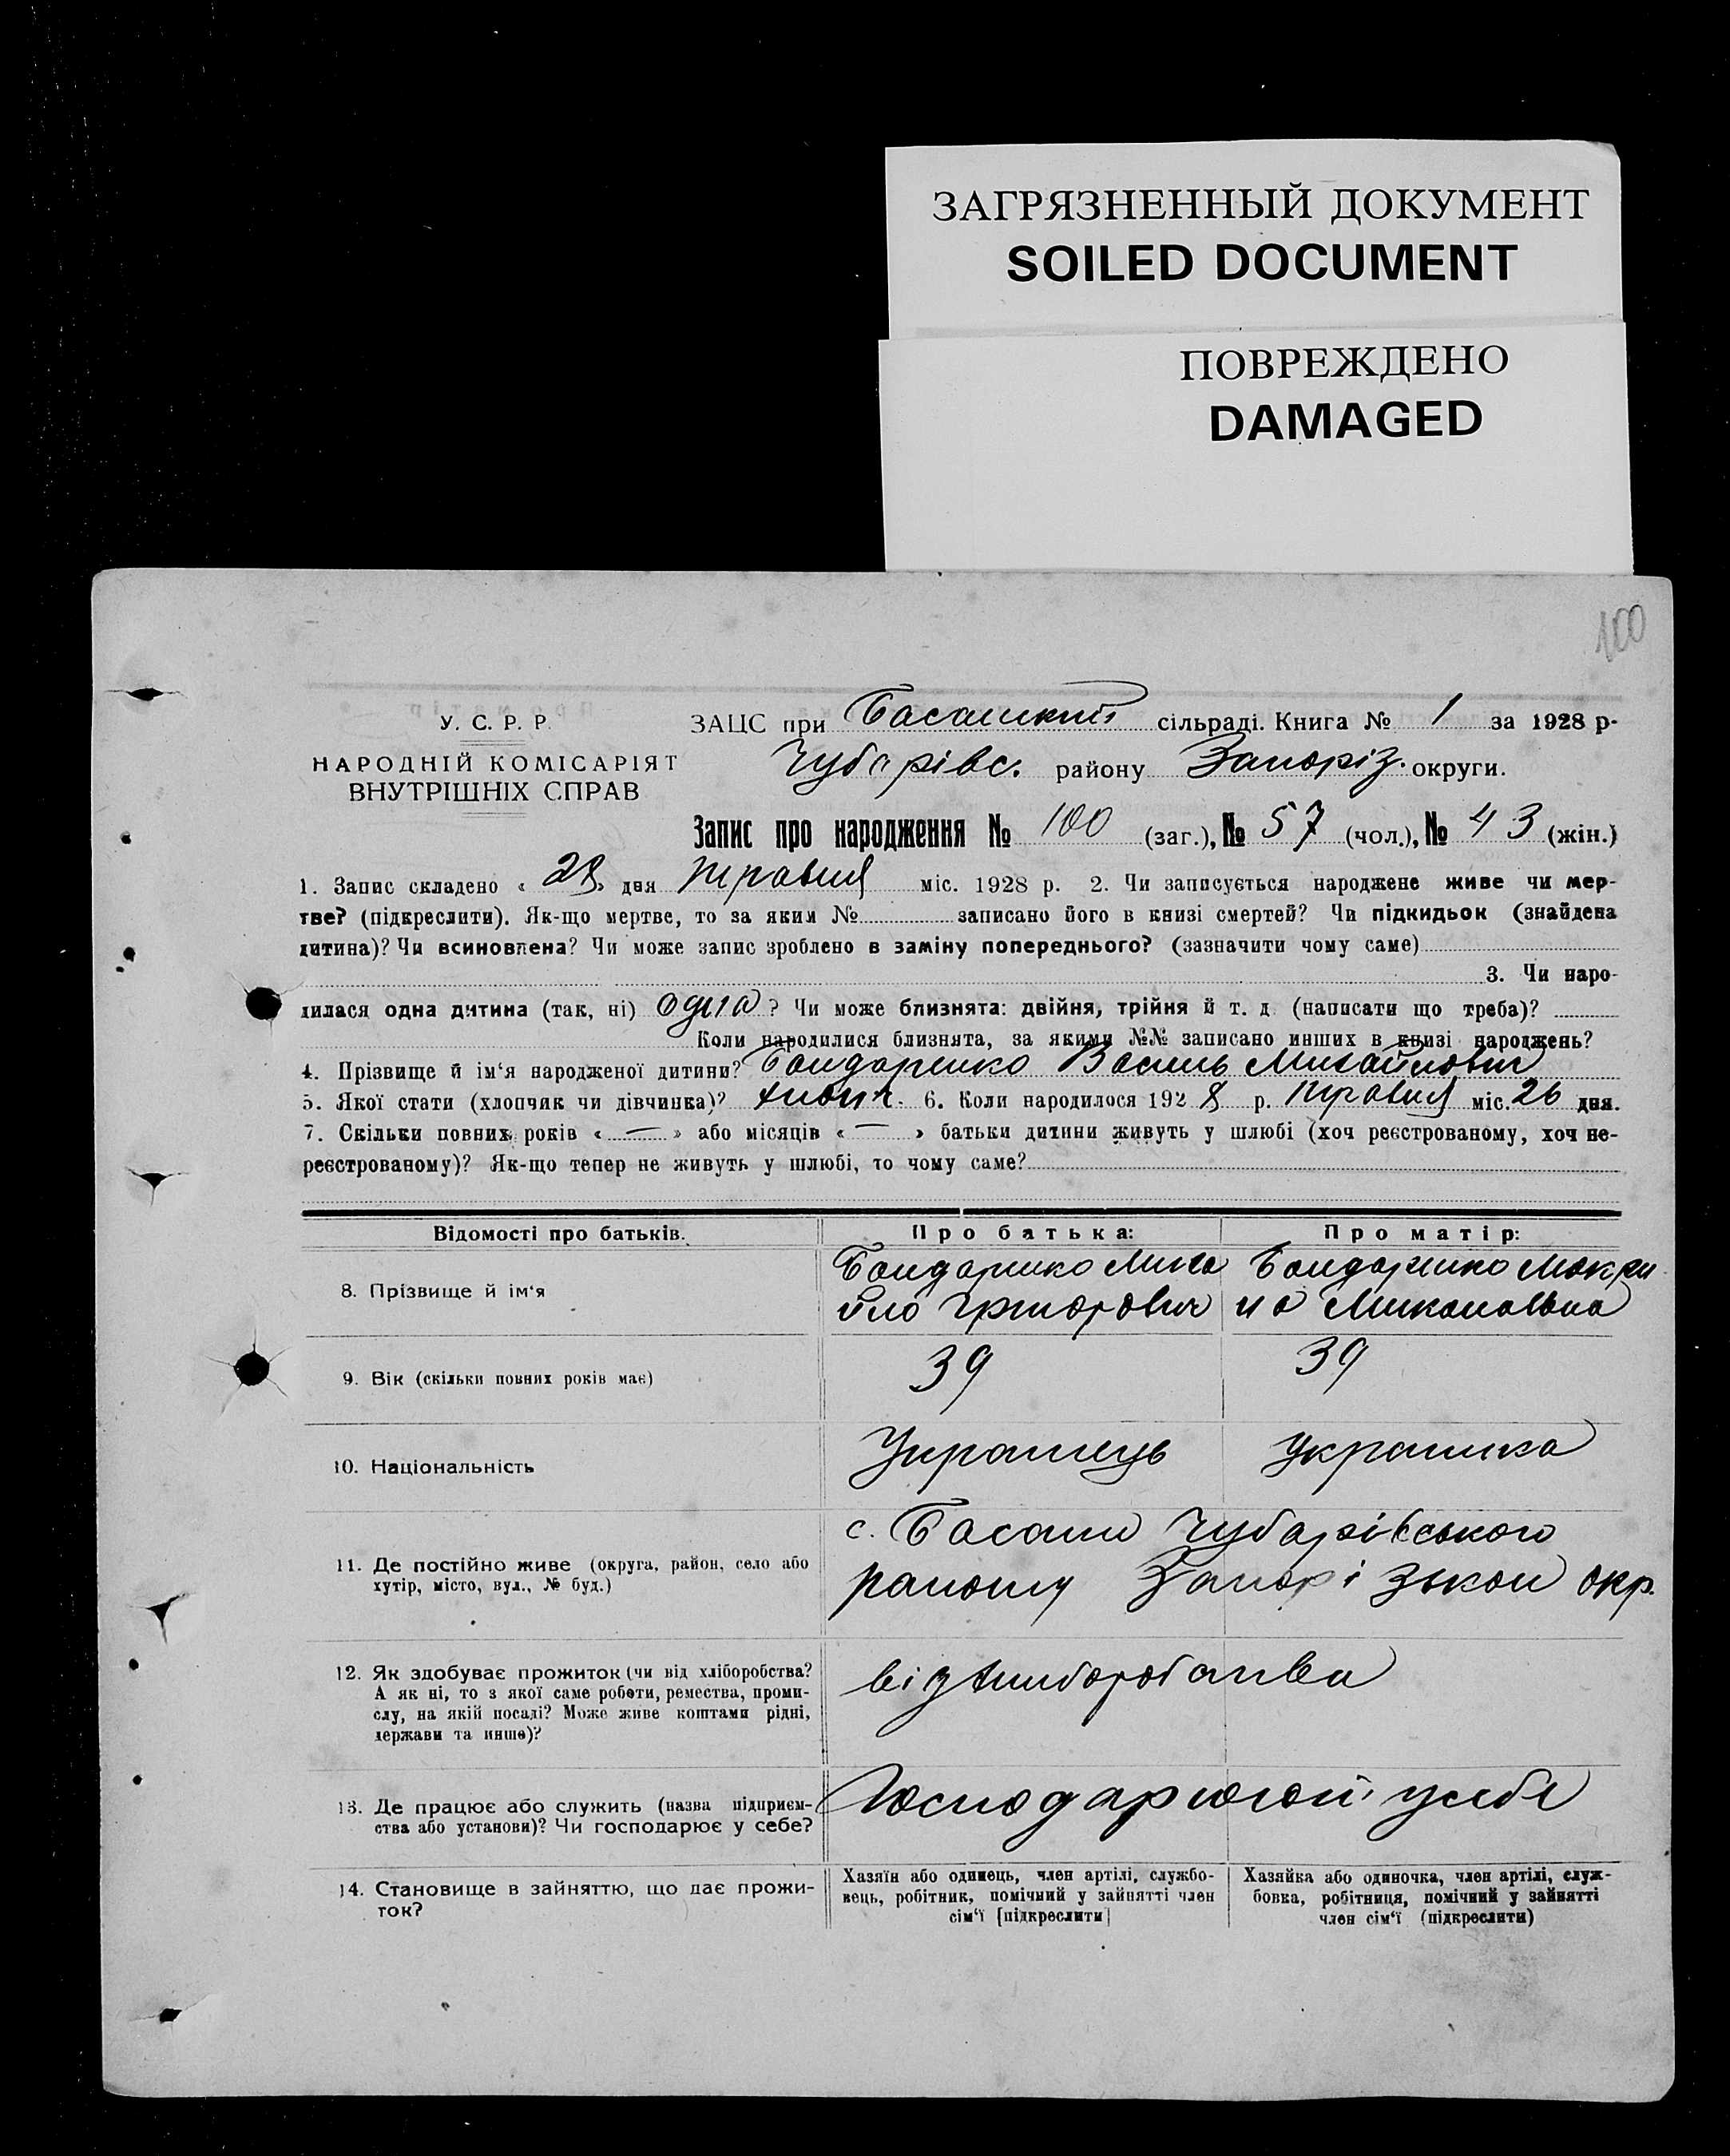 ЗАГРЯЗНЕННЫЙ ДОКУМЕНТ
SOILED DOCUMENT
ПОВРЕЖДЕНО
DAMAGED
100
У. С. Р. Р.
НАРОДНІЙ КОМІСАРІЯТ
ВНУТРІШНІХ СПРАВ
ЗАЦС при Басанській сільраді. Книга № 1 за 1928 р-
Чубарівс. району Запоріз. округи.
Запис про народження № 100 (заг.), № 57 (чол.), № 43 (жін.)
1. Запис складено « 28 » дня травня міс. 1928 р. 2. Чи записується народжене живе чи мер-
тве? (підкреслити). Як-що мертве, то за яким № записано його в книзі смертей? Чи підкидьок (знайдена
дитина)? Чи всиновлена? Чи може запис зроблено в заміну попереднього? (зазначити чому саме)
3. Чи наро-
дилася одна дитина (так, ні) одна ? Чи може близнята: двійня, трійня й т. д. (написати що треба)?
Коли народилися близнята, за якими №№ записано инших в книзі народжень?
4. Прізвище й ім‘я народженої дитини? Бондаренко Василь Михайлович
5. Якої стати (хлопчик чи дівчинка)? хлопч. 6. Коли народилося 1928 р. травня міс. 26 дня.
7. Скільки повних років « — » або місяців « — » батьки дитини живуть у шлюбі (хоч реєстрованому, хоч не-
реєстрованому)? Як-що тепер не живуть у шлюбі, то чому саме?
Відомості про батьків. Про батька: Про матір:
8. Прізвище й ім‘я
Бондаренко Миха
йло Григорович
Бондаренко Мокри
на Миколаївна
9. Вік (скільки повних років має) 39 39
10. Національність Українець Українка
11. Де постійно живе (округа, район, село або
хутір, місто, вул., № буд.)
с. Басань Чубарівського
району Запорізької окр.
12. Як здобуває прожиток (чи від хліборобства?
А як ні, то з якої саме роботи, ремества, проми-
слу, на якій посаді? Може живе коштами рідні,
держави та инше)?
від хліборобства
13. Де працює або служить (назва підприєм-
ства або установи)? Чи господарює у себе?
Господарює у себе
14. Становище в зайняттю, що дає прожи-
ток?
Хазяїн або одинець, член артілі, службо-
вець, робітник, помічний у зайнятті член
сім‘ї [підкреслити]
Хазяйка або одиночка, член артілі, служ-
бовка, робітниця, помічний у зайнятті
член сім‘ї (підкреслити)